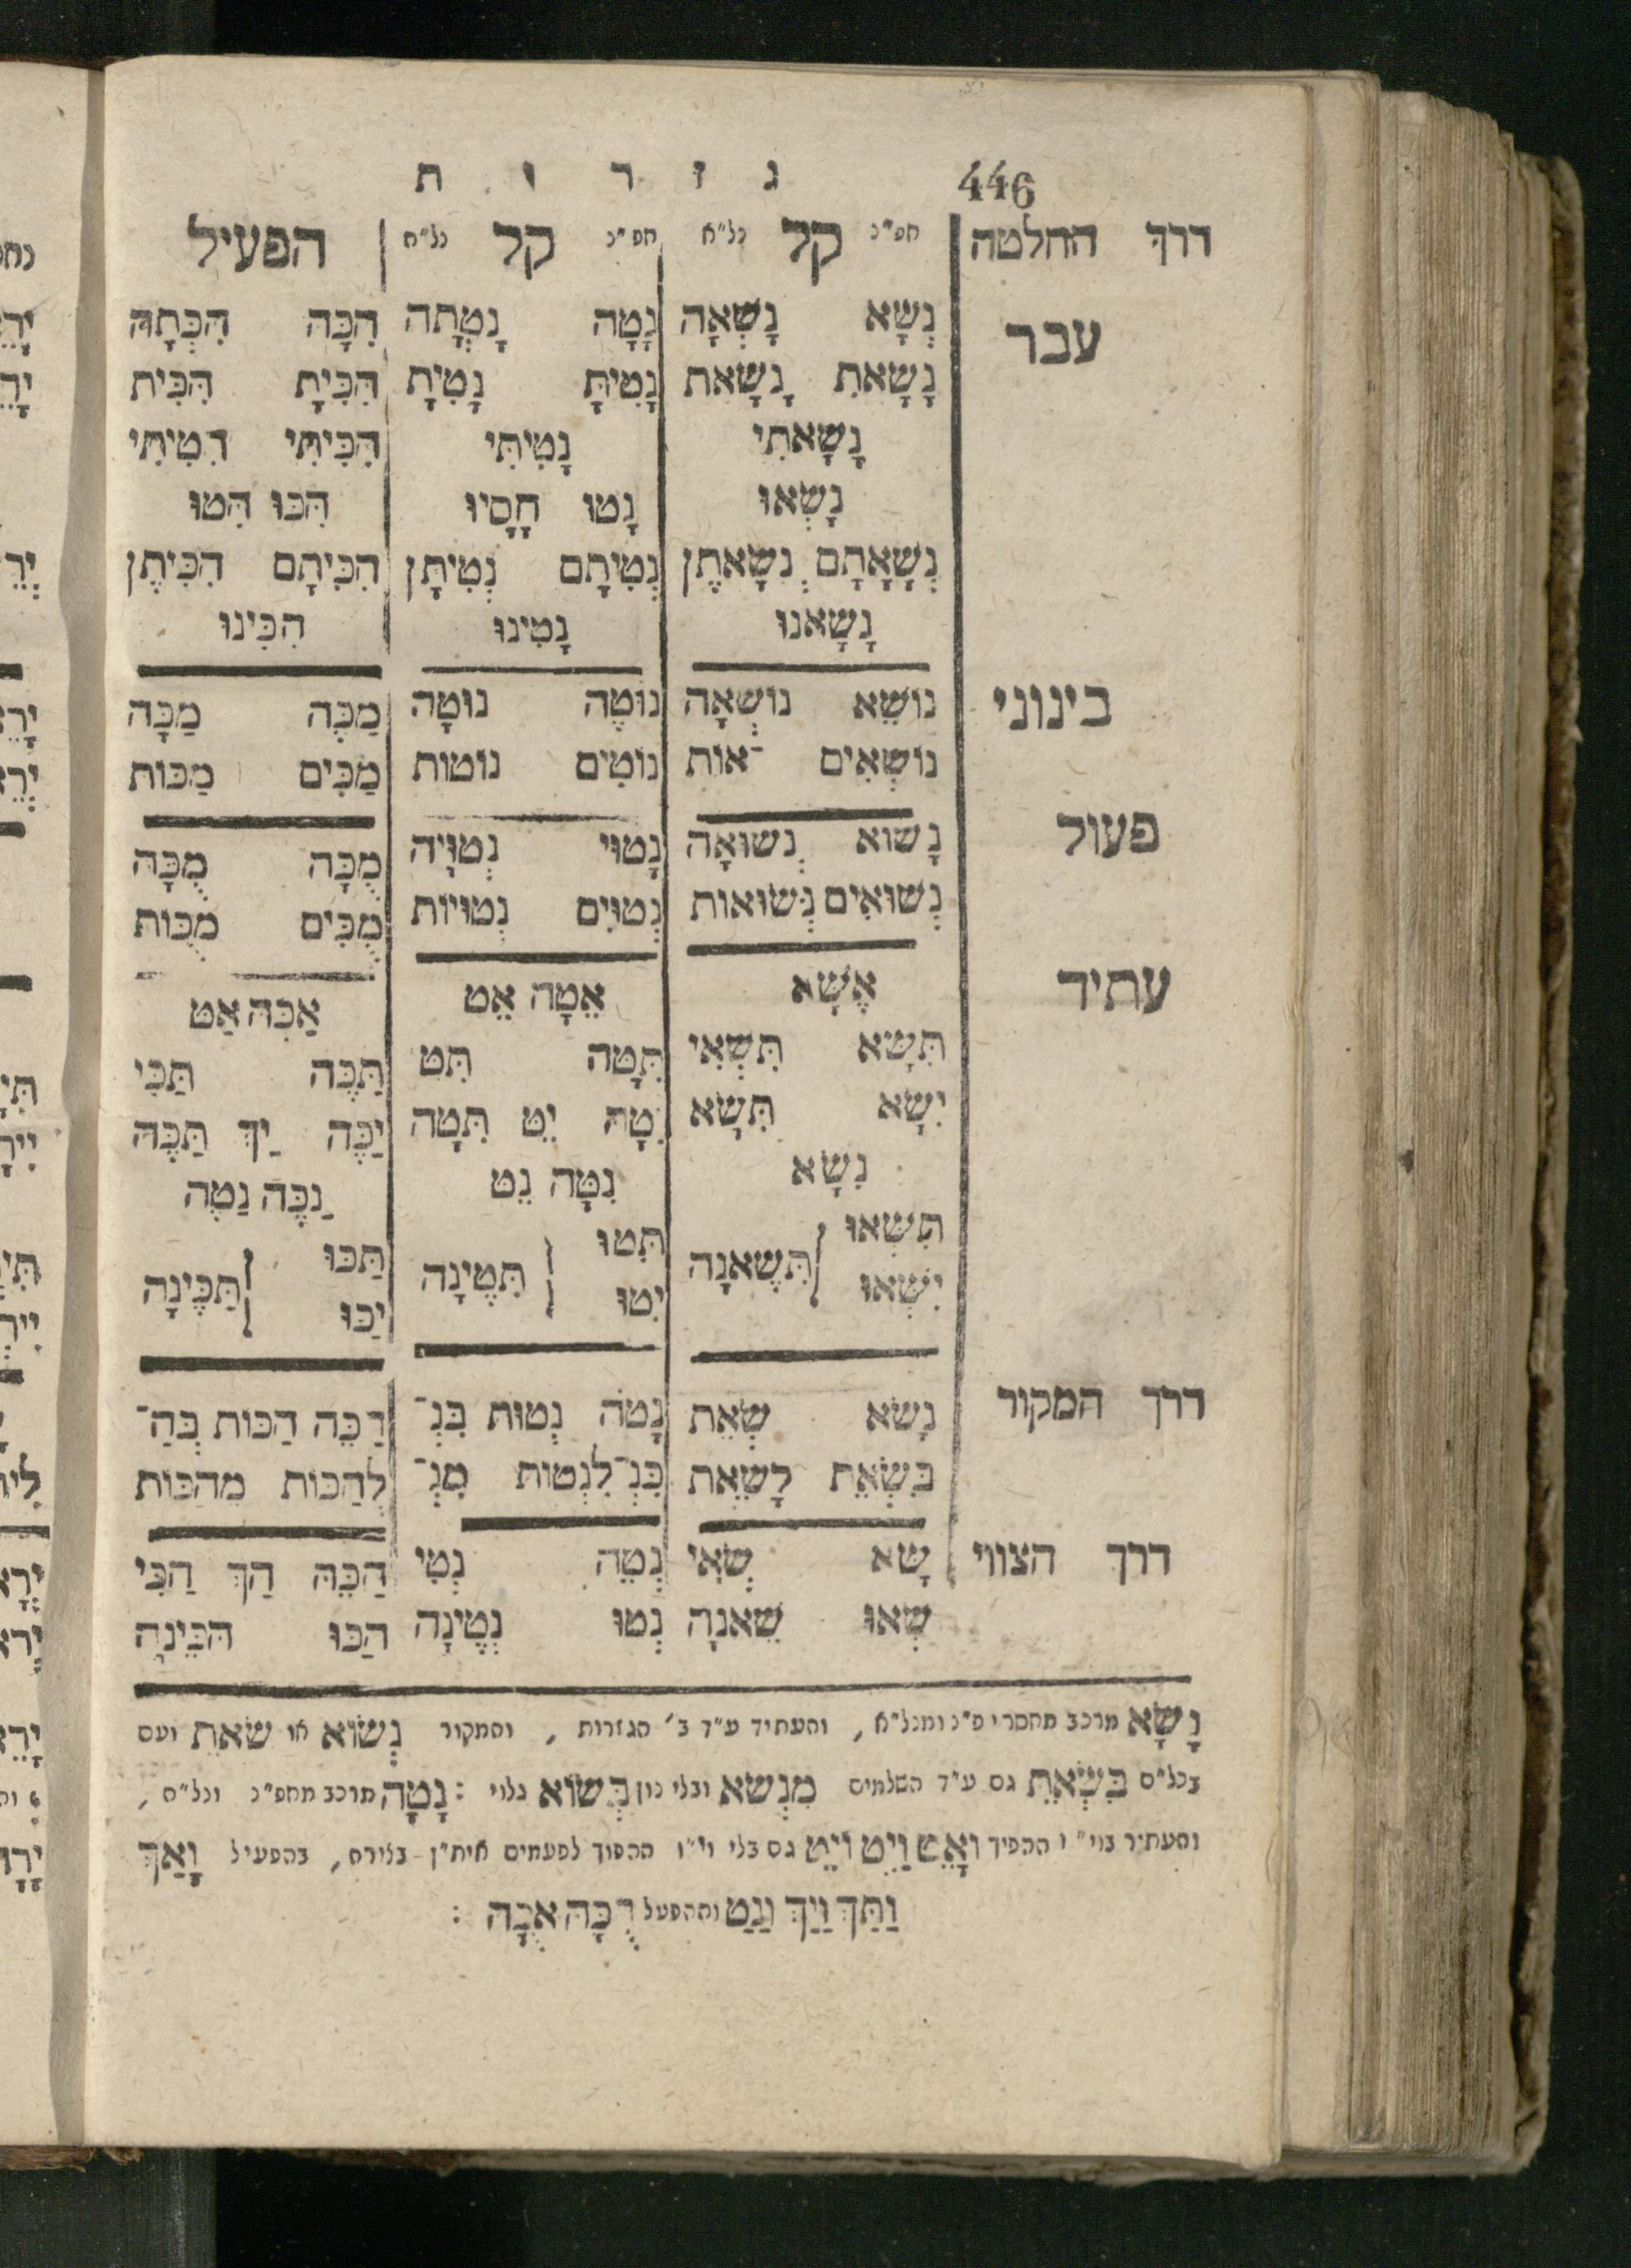 446 ג ז ר י ת
דרך החלטה חפ״נ קל כל״א חפ״נ קל כל״ה הפעיל
עבר נְשָׂא נָשְׂאָה נָטָה נָטְתָה הִכָּה הִכְּתָה
נָשָׂאתִ נָשָׂאת נָטִיתָּ נָטִיתָ הִכִּיתָ הִכִּית
נָשָׂאתִי נָטִיתִּי הִכִּיתִּי הִטִיתִּי
נָשְׂאוּ נָטוּ חָסָיוּ הִכּוּ הִטוּ
נְשָׂאתָם נְשָׂאתֶן נְטִיתָם נְטִיתָּן הִכִּיתָם הִכִּיתֶן
נָשָׂאנוּ נָטִינוּ הִכִּינוּ
בינוני נוֹשֵׂא נוֹשְׂאָה נוֹטֶה נוֹטָה מַכֶּה מַכָּה
נוֹשְׂאִים ־אוֹת נוֹטִים נוֹטוֹת מַכִּים מַכּוֹת
פעול נָשׂוּא נְשׂוּאָה נָטוּי נְטוּיָה מֻכָּה מֻכָּה
נְשׂוּאִים נְשׂוּאוֹת נְטוּיִם נְטוּיוֹת מֻכִּים מֻכּוֹת
עתיד אֶשָּׂא אֵטָה אֵט אַכֶּה אַט
תִּשָּׂא תִּשְׂאִי תִּטָּה תִּט תַּכֶּה תַּכִּי
יִשָּׂא תִּשָּׂא טָּה יֵט תִּטָּה יַכֶּה יַךְ תַּכֶּה
נִשָּׂא נִטָּה נֵט נַכֶּה נַטֶה
תִּשְׂאוּ תִּטוּ תַּכּוּ
תִּשֶּׂאנָה תִּטֶּינָה תַּכֶּינָה
יִשְׂאוּ יִטוּ יַכּוּ
דרך המקור נָשׂא שְׂאֵת נָטֹה נְטוֹת בִּנְ־ הַכֵּה הַכּוֹת בְּהַ־
בִּשְׂאֵת לָשְׂאֵת כִּנְ־ לִנְטוֹת מִנְ־ לְהַכּוֹת מִהַכּוֹת
דרך הצווי שָׂא שְׂאִי נְטֵה נְטִי הַכֵּה הַךְ הַכִּי
שְׂאוּ שֶׂאנָה נְטוּ נְטֶינָה הַכּוּ הַכֵּינָה
נָשָׂא מרכב מחסרי פ״נ ומנל״א, והעתיד ע״ד ב׳ הגזרות, והמקור נְשׂוֹא או שֹאת ועם
בכל״ם בִּשְׂאֵת גם ע״ד השלמים מִנְשׂא ובלי נון בְּשׂוֹא גלוי : נָטָה מרכב מחפ״נ ונל״ה,
והעתיד בוי״ו ההפיך וָאֵט וַיִּט וַיֵּט גם בלי וי״ו ההפוך לפעמים אית״ן בצירה, בהפעיל וָאַךְ
וַתַּךְ וַיַּךְ וַנַּט וההפעל הֻכָּה אֻכָּה :